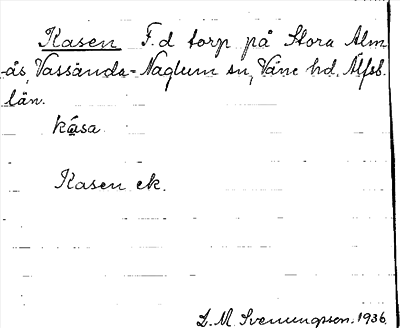 Kasen F.d torp på Stora Alm
ås, Vassända-Naglum sn, Väne hd. Älfsb.
län.
kasa
Kasen ek.
L. M. Svenungsson. 1936.